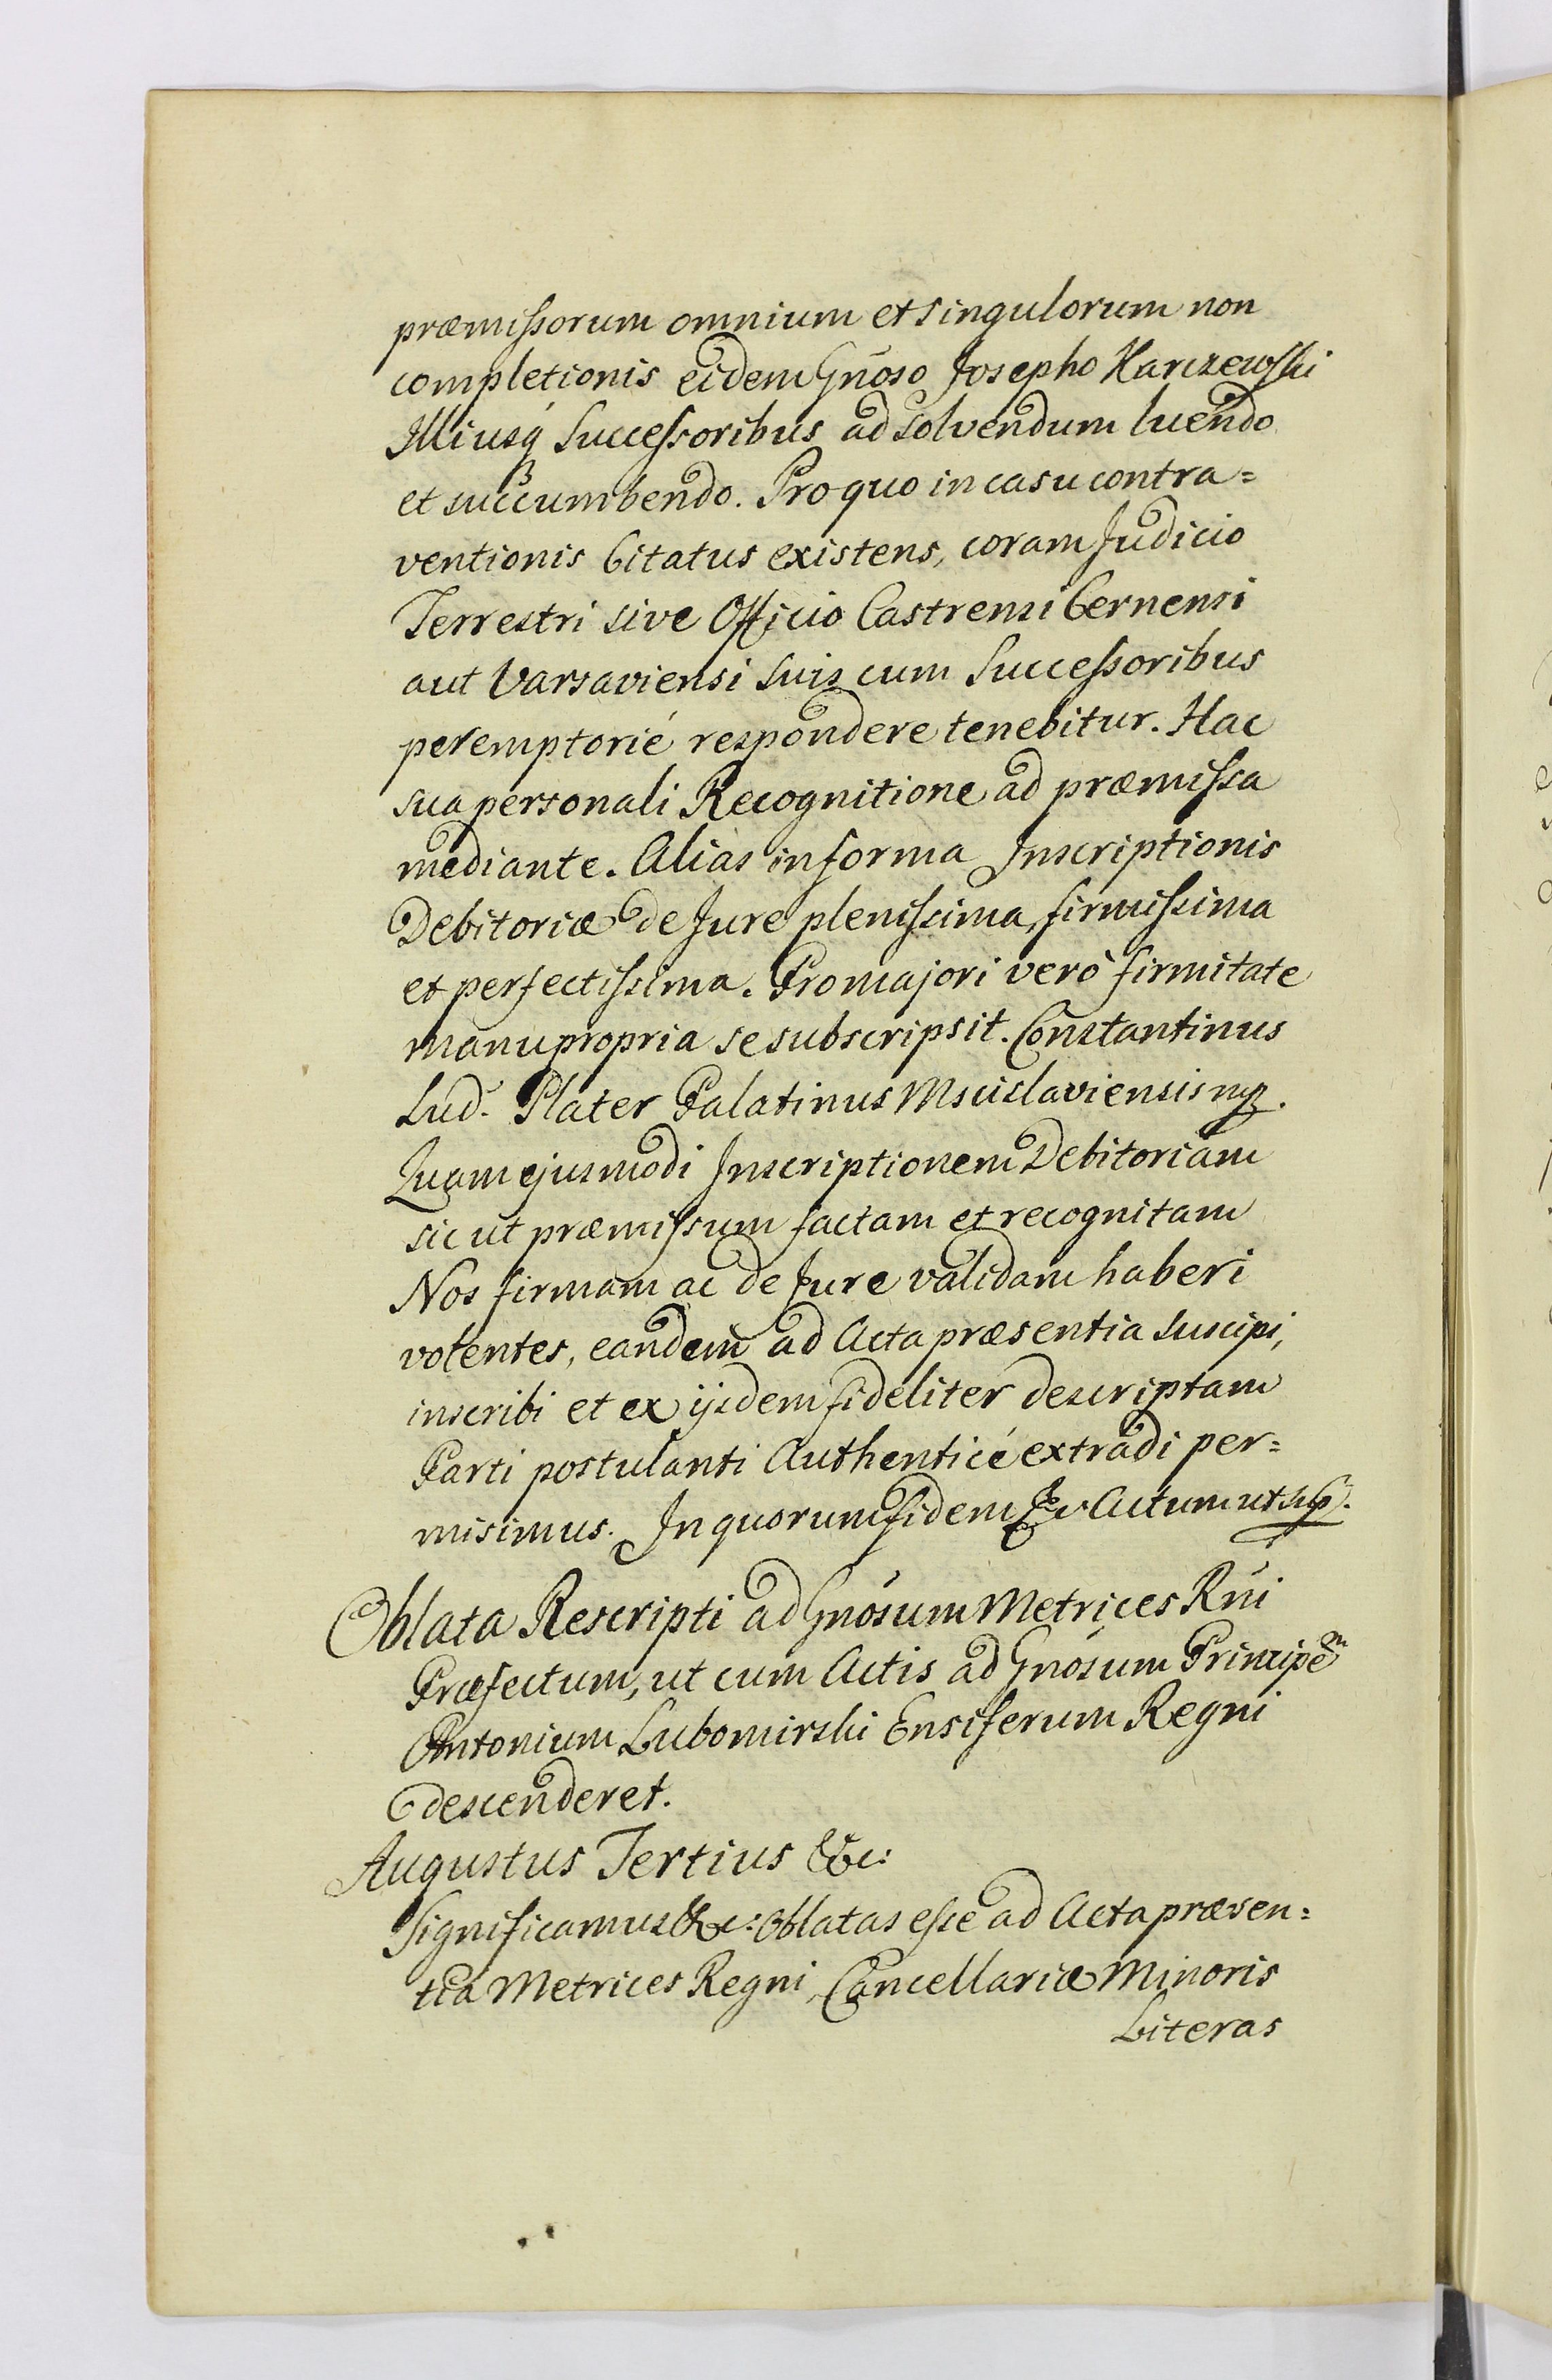 præmissorum omnium et singulorum non
completionis eidem Gnoso Josepho Karczewski
Illiusq́ Successoribus ad solvendum luendo
et succumbendo. Pro quo in casu contra=
ventionis Citatus existens, coram Judicio
Terrestri sive Officio Castrensi Cernensi
aut Varsaviensi suis cum Successoribus
peremptorié respondere tenebitur. Hac
sua personali Recognitione ad præmissa
mediante. Alias in forma Inscriptionis
Debitoriæ de Jure plenissima, firmissima
et perfectissima. Pro majori verò firmitate
manu propria se subscripsit. Constantinus
Lud. Plater Palatinus Mscislaviensis mp.
Quam ejusmodi Inscriptionem Debitoriam
sic ut præmissum factam et recognitam
Nos firmam ac de Jure validam haberi
volentes, eandem ad Acta præsentia suscipi,
inscribi et ex ijsdem fideliter descriptam
Parti postulanti Authenticé extradi per=
misimus. In quorum fidem &c Actum ut sup.
Oblata Rescripti ad Gnosum Metrices Rńi
Præfectum, ut cum Actis ad Gnosum Principem
Antonium Lubomirski Ensiferum Regni
descenderet.
Augustus Tertius &c:
Significamus &c: Oblatas esse ad Acta præsen=
tia Metrices Regni, Cancellariæ Minoris
Literas